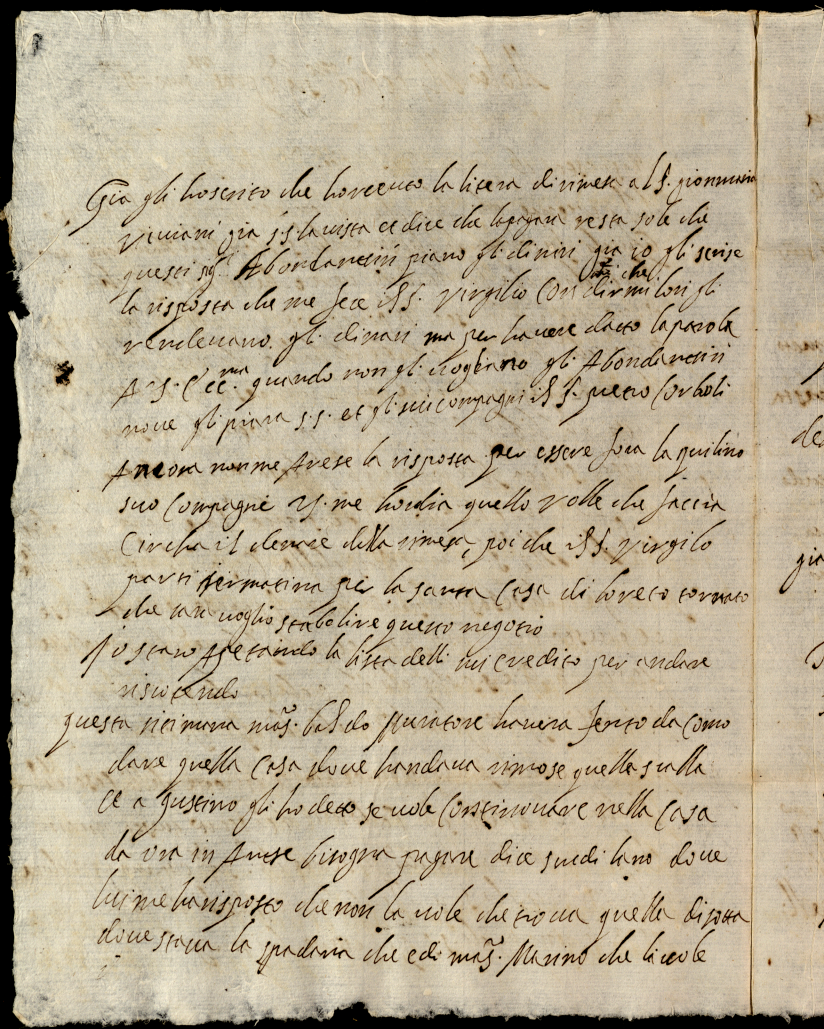 Gia gli ho scrito che ho receuto la litera di rimesa al S. gionmaria
Viviani gia s.s. la vista et dice che la pagara resta solo che
questi sig.ri Abondantini piano gli dinari gia io gli scrise
la risposta che me fece il S. Virgilio con dirmi che lori gli
rendevano gli dinari ma per havere dato la parola
A V.S. Ecc.ma quando non gli vogliano gli Abondantini
nove gli piara s.s. et gli mi compagni il S. pietro Corboli
Ancora non me Arese la risposta per essere fora la quilino
suo Compagni V.S. me hordia quello volle che faccia
Circha il denare della rimesa, poi che il S. Virgilo
parti iermatina per la santa Casa di loreto tornato
che sara voglio stabolire questo negotio
Io staro Aspetando la lista delli mi credito per andare
risciotendo
questa sitimana mas. baldo muratore havera fenito da como
dare quella Casa dove handava rimose quella scalla
et a gustino gli ho deto se vole Constinovare nella Casa
da ora in Avese bisogna pagare dice scudi lano dove
lui me ha risposto che non la vole che trova quella di sotta
dove stava la spadaria che e di mas. Marino che li vole